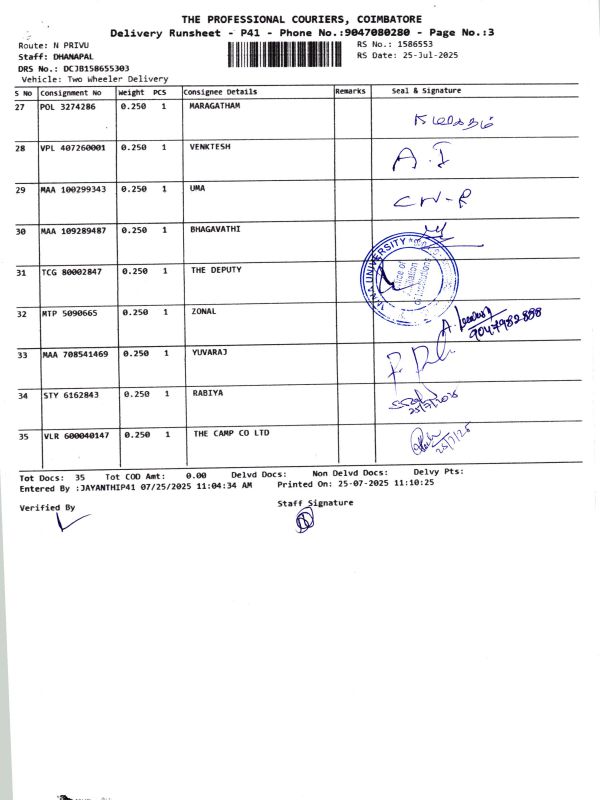 THE PROFESSIONAL COURIERS, COIMBATORE
Delivery Runsheet - P41 - Phone No.:9047080280 - Page No.:3
Route: N PRIVU RS No.: 1586553
Staff: DHANAPAL RS Date: 25-Jul-2025
DRS No.: DCJB158655303
Vehicle: Two Wheeler Delivery
S No Consignment No Weight PCS Consignee Details Remarks Seal & Signature
27 POL 3274286 0.250 1 MARAGATHAM
28 VPL 407260001 0.250 1 VENKTESH A. I
29 MAA 100299343 0.250 1 UMA
30 MAA 109289487 0.250 1 BHAGAVATHI
31 TCG 80002847 0.250 1 THE DEPUTY
UNIVERSITY
32 MTP 5090665 0.250 1 ZONAL
9047982888
33 MAA 708541469 0.250 1 YUVARAJ
34 STY 6162843 0.250 1 RABIYA
25/7/2025
35 VLR 600040147 0.250 1 THE CAMP CO LTD
25/7/25
Tot Docs: 35 Tot COD Amt: 0.00 Delvd Docs: Non Delvd Docs: Delvy Pts:
Entered By :JAYANTHIP41 07/25/2025 11:04:34 AM Printed On: 25-07-2025 11:10:25
Verified By Staff Signature